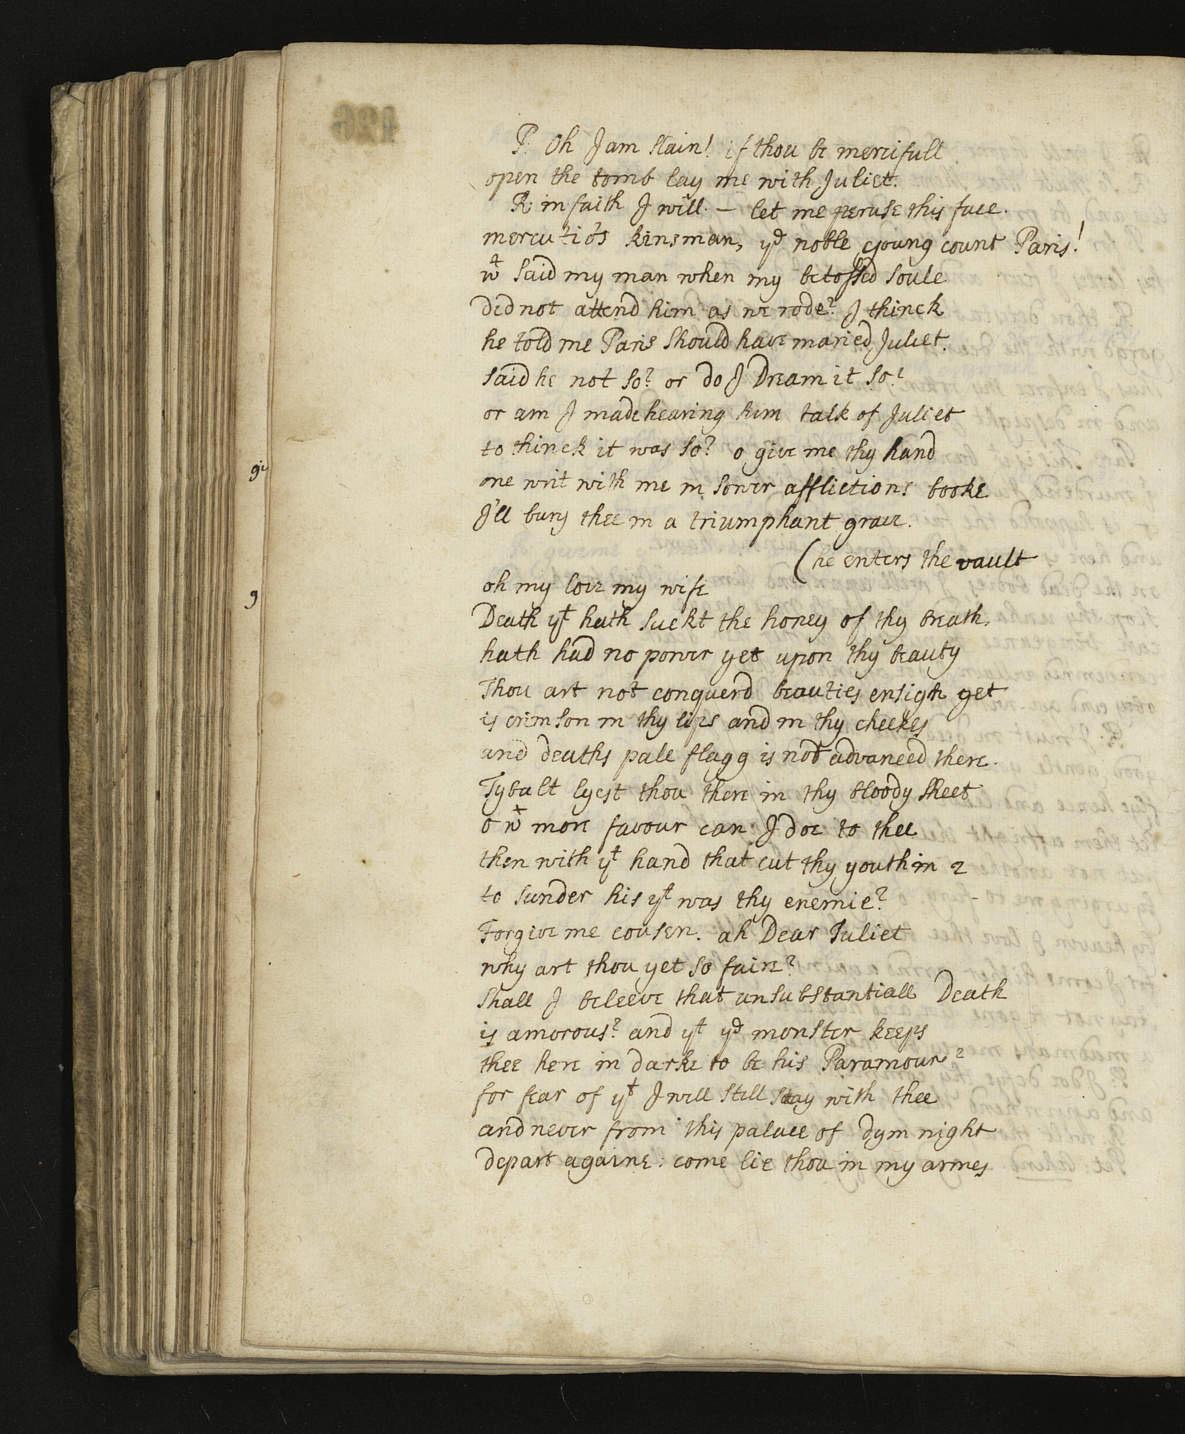 P. Oh I am slain! if thou be mercifull
open the tomb lay me with Juliet.
R. in faith I will. — let me peruse this face.
mercutio's kinsman, yd noble cyoung count Paris!
wt said my man when my betossed soule
did not attend him as we rode? I thinck
he told me Paris should have maried Juliet.
said he not so? or do I Dream it so?
or am I made hearing him talk of Juliet
to thinck it was so? o give me thy hand
one writ with me in sower afflictions booke
I'll bury thee in a triumphant grave.
(he enters the vault
oh my love my wife
Death yt hath suckt the honey of thy breath,
hath had no power yet upon thy beauty
Thou art not conquerd beauties ensign yet
is crimson in thy lips and in thy cheekes
and deaths pale flagg is not advanced there.
Tybalt lyest thou there in thy bloody sheet
o wt more favour can I doe to thee
then with yt hand that cut thy youth in 2
to sunder his yt was thy enemie?
Forgive me cousen. ah Dear Juliet
why art thou yet so faire?
shall I beleeve that unsubstantiall Death
is amorous? and yt yd monster keeps
thee here in darke to be his Paramour?
for fear of yt I will still stay with thee
and never from this palace of dym night
depart againe: come lie thou in my armes